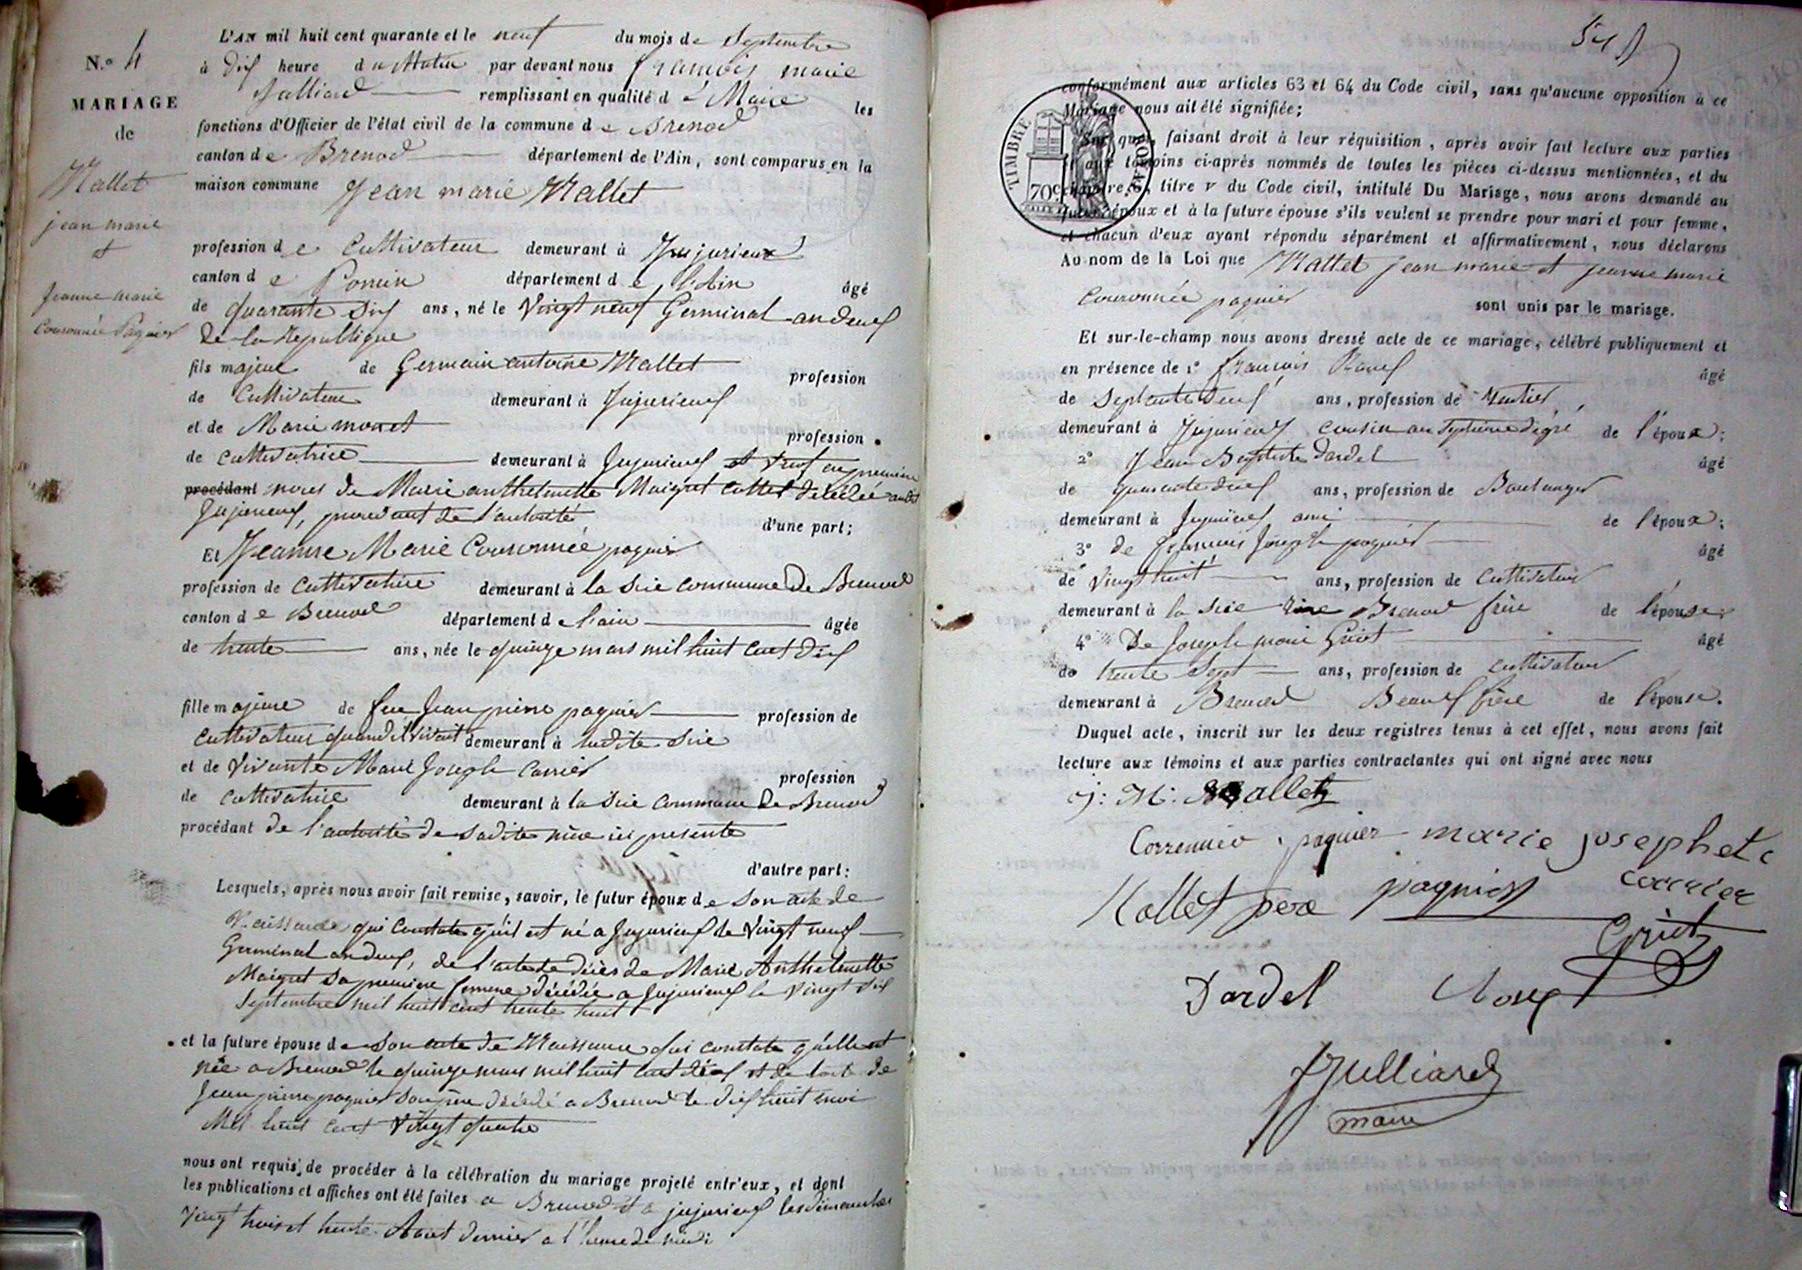 N.º 4
MARIAGE
de
Mallet
jean marie
et
Jeanne marie
Couronnée Paquier
L'AN mil huit cent quarante et le neuf du mois de Septembre
à dix heure du Matin par devant nous françois marie
Julliard remplissant en qualité de Maire les
fonctions d'Officier de l'état civil de la commune de Brenod
canton de Brenod département de l'Ain, sont comparus en la
maison commune Jean marie Mallet
profession de Cultivateur demeurant à Jujurieux
canton de Poncin département de l'Ain âgé
de quarante dix ans, né le Vingt neuf Germinal an deux
de la République
fils majeur de Germain antoine Mallet profession
de Cultivateur demeurant à Jujurieux
et de Marie profession
de cultivatrice demeurant à Jujurieux et Veuf en premiere
procédant noces de Marie anthelmette Maigret décédée audit
Jujurieux, procedant de l'autorité d'une part;
Et Jeanne Marie Couronnée paquier
profession de cultivatrice demeurant à la Sire commune De Brenod
canton de Brenod département de l'ain âgée
de trente ans, née le quinze mars mil huit cent dix
fille majeure de feu Jean pierre paquier profession de
cultivateur quand il vivait demeurant à ladite Sire
et de Vivante Marie Joseph Carrier profession
de cultivatrice demeurant à la Sire commune De Brenod
procédant de l'autorité de sadite mère ici presente
d'autre part:
Lesquels, après nous avoir fait remise, savoir, le futur époux de son acte de
Naissance qui constate qu'il est né a Jujurieux le Vingt neuf
Germinal an deux, de l'acte de décès de Marie Anthelmette
Maigret sa premiere femme décédée a Jujurieux le Vingt dix
Septembre mil huit cent trente huit
et la future épouse de son acte de Naissance qui constate qu'elle est
née a Brenod le quinze mars mil huit cent dix et de l'acte de
Jean pierre paquier son père décédé a Brenod le dix huit
Mil huit cent Vingt quatre
nous ont requis de procéder à la célébration du mariage projeté entr'eux, et dont
les publications et affiches ont été faites a Brenod et a jujurieux les dimanches
Vingt trois et trente Aout dernier a l'heure de midi
conformément aux articles 63 et 64 du Code civil, sans qu'aucune opposition à ce
Mariage nous ait été signifiée;
TIMBRE ROYAL
70c
Sur quoi, faisant droit à leur réquisition, après avoir fait lecture aux parties
et aux témoins ci-après nommés de toutes les pièces ci-dessus mentionnées, et du
chapitre 6, titre v du Code civil, intitulé Du Mariage, nous avons demandé au
futur époux et à la future épouse s'ils veulent se prendre pour mari et pour femme,
et chacun d'eux ayant répondu séparément et affirmativement, nous déclarons
Au nom de la Loi que Mallet jean marie et jeanne marie
Couronnée paquier sont unis par le mariage.
Et sur-le-champ nous avons dressé acte de ce mariage, célébré publiquement et
en présence de 1º françois âgé
de Septante deux ans, profession de Rentier
demeurant à Jujurieux cousin au septieme dégré de l'époux;
2º Jean Baptiste Dardel âgé
de quarante deux ans, profession de Boulanger
demeurant à Jujurieux ami de l'époux;
3º de françois Joseph paquier âgé
de Vingt huit ans, profession de Cultivateur
demeurant à la Sire Brenod frère de l'épouse
4º De Joseph marie Griot âgé
de trente Sept ans, profession de cultivateur
demeurant à Brenod Beauf frère de l'épouse.
Duquel acte, inscrit sur les deux registres tenus à cet effet, nous avons fait
lecture aux témoins et aux parties contractantes qui ont signé avec nous
j: M: Mallet
Correnneo paquier marie josephete
Mallet pere paquier carrier
Griot
Dardel
Julliard
maire